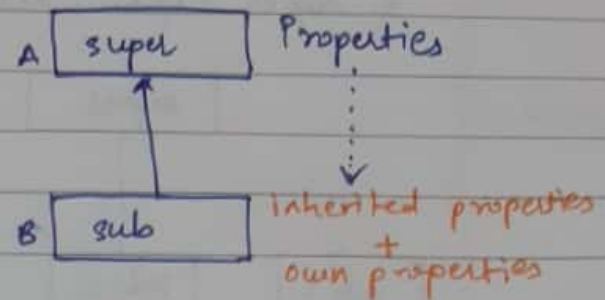 A super Properties
B sub inherited properties
+
own properties